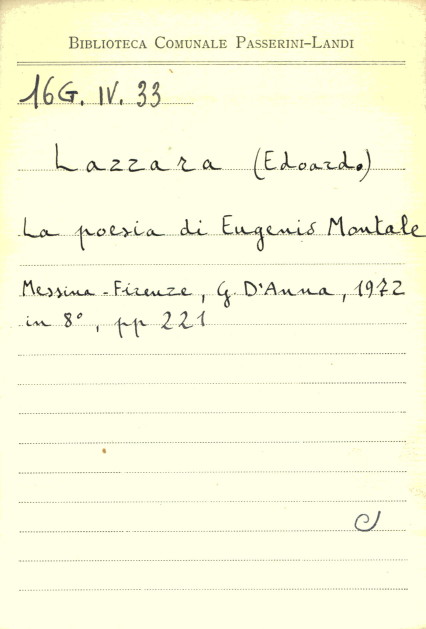 BIBLIOTECA COMUNALE PASSERINI-LANDI
16G. IV. 33
Lazzara (Edoardo)
La poesia di Eugenio Montale
Messina - Firenze, G. D'Anna, 1972
in 8°, pp 221